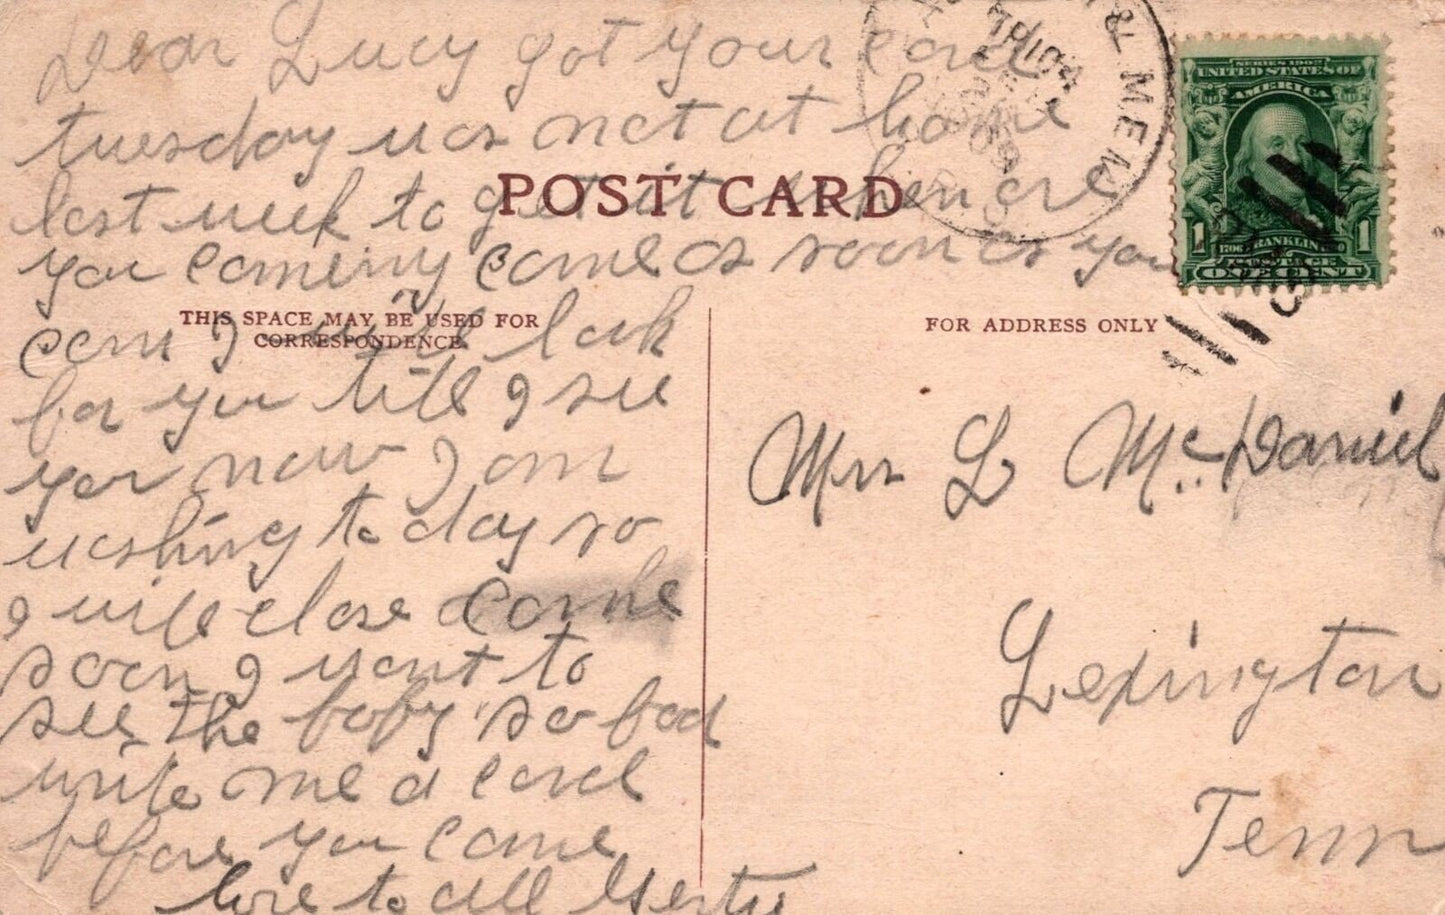 Dear Lucy got your card
tuesday was not at home
last week to get it when are
you coming come as soon as you
can I will look
for you till I see
you now I am
washing to day so
I will close come
soon I want to
see the baby so bad
write me a card
before you come
love to all Gertie
POST CARD
THIS SPACE MAY BE USED FOR
CORRESPONDENCE.
FOR ADDRESS ONLY
Mrs L McDaniel
Lexington
Tenn
& MEM
SERIES 1902
UNITED STATES OF
AMERICA
1 1706 FRANKLIN 1
POSTAGE
ONE CENT